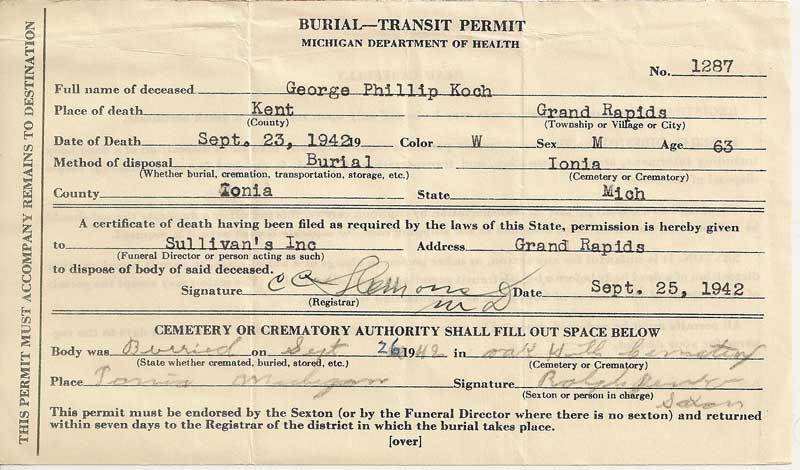 BURIAL—TRANSIT PERMIT
MICHIGAN DEPARTMENT OF HEALTH
No. 1287
Full name of deceased George Phillip Koch
Place of death Kent Grand Rapids
(County) (Township or Village or City)
Date of Death Sept. 23, 194219 Color W Sex M Age 63
Method of disposal Burial Ionia
(Whether burial, cremation, transportation, storage, etc.) (Cemetery or Crematory)
County Ionia State Mich
A certificate of death having been filed as required by the laws of this State, permission is hereby given
to Sullivan's Inc Address Grand Rapids
(Funeral Director or person acting as such)
to dispose of body of said deceased.
Signature MD Date Sept. 25, 1942
(Registrar)
CEMETERY OR CREMATORY AUTHORITY SHALL FILL OUT SPACE BELOW
Body was Burried on Sept 26 1942 in Cemetery
(State whether cremated, buried, stored, etc.) (Cemetery or Crematory)
Place Ionia Michigan Signature Ralph
(Sexton or person in charge)
This permit must be endorsed by the Sexton (or by the Funeral Director where there is no sexton) and returned
within seven days to the Registrar of the district in which the burial takes place.
[over]
THIS PERMIT MUST ACCOMPANY REMAINS TO DESTINATION